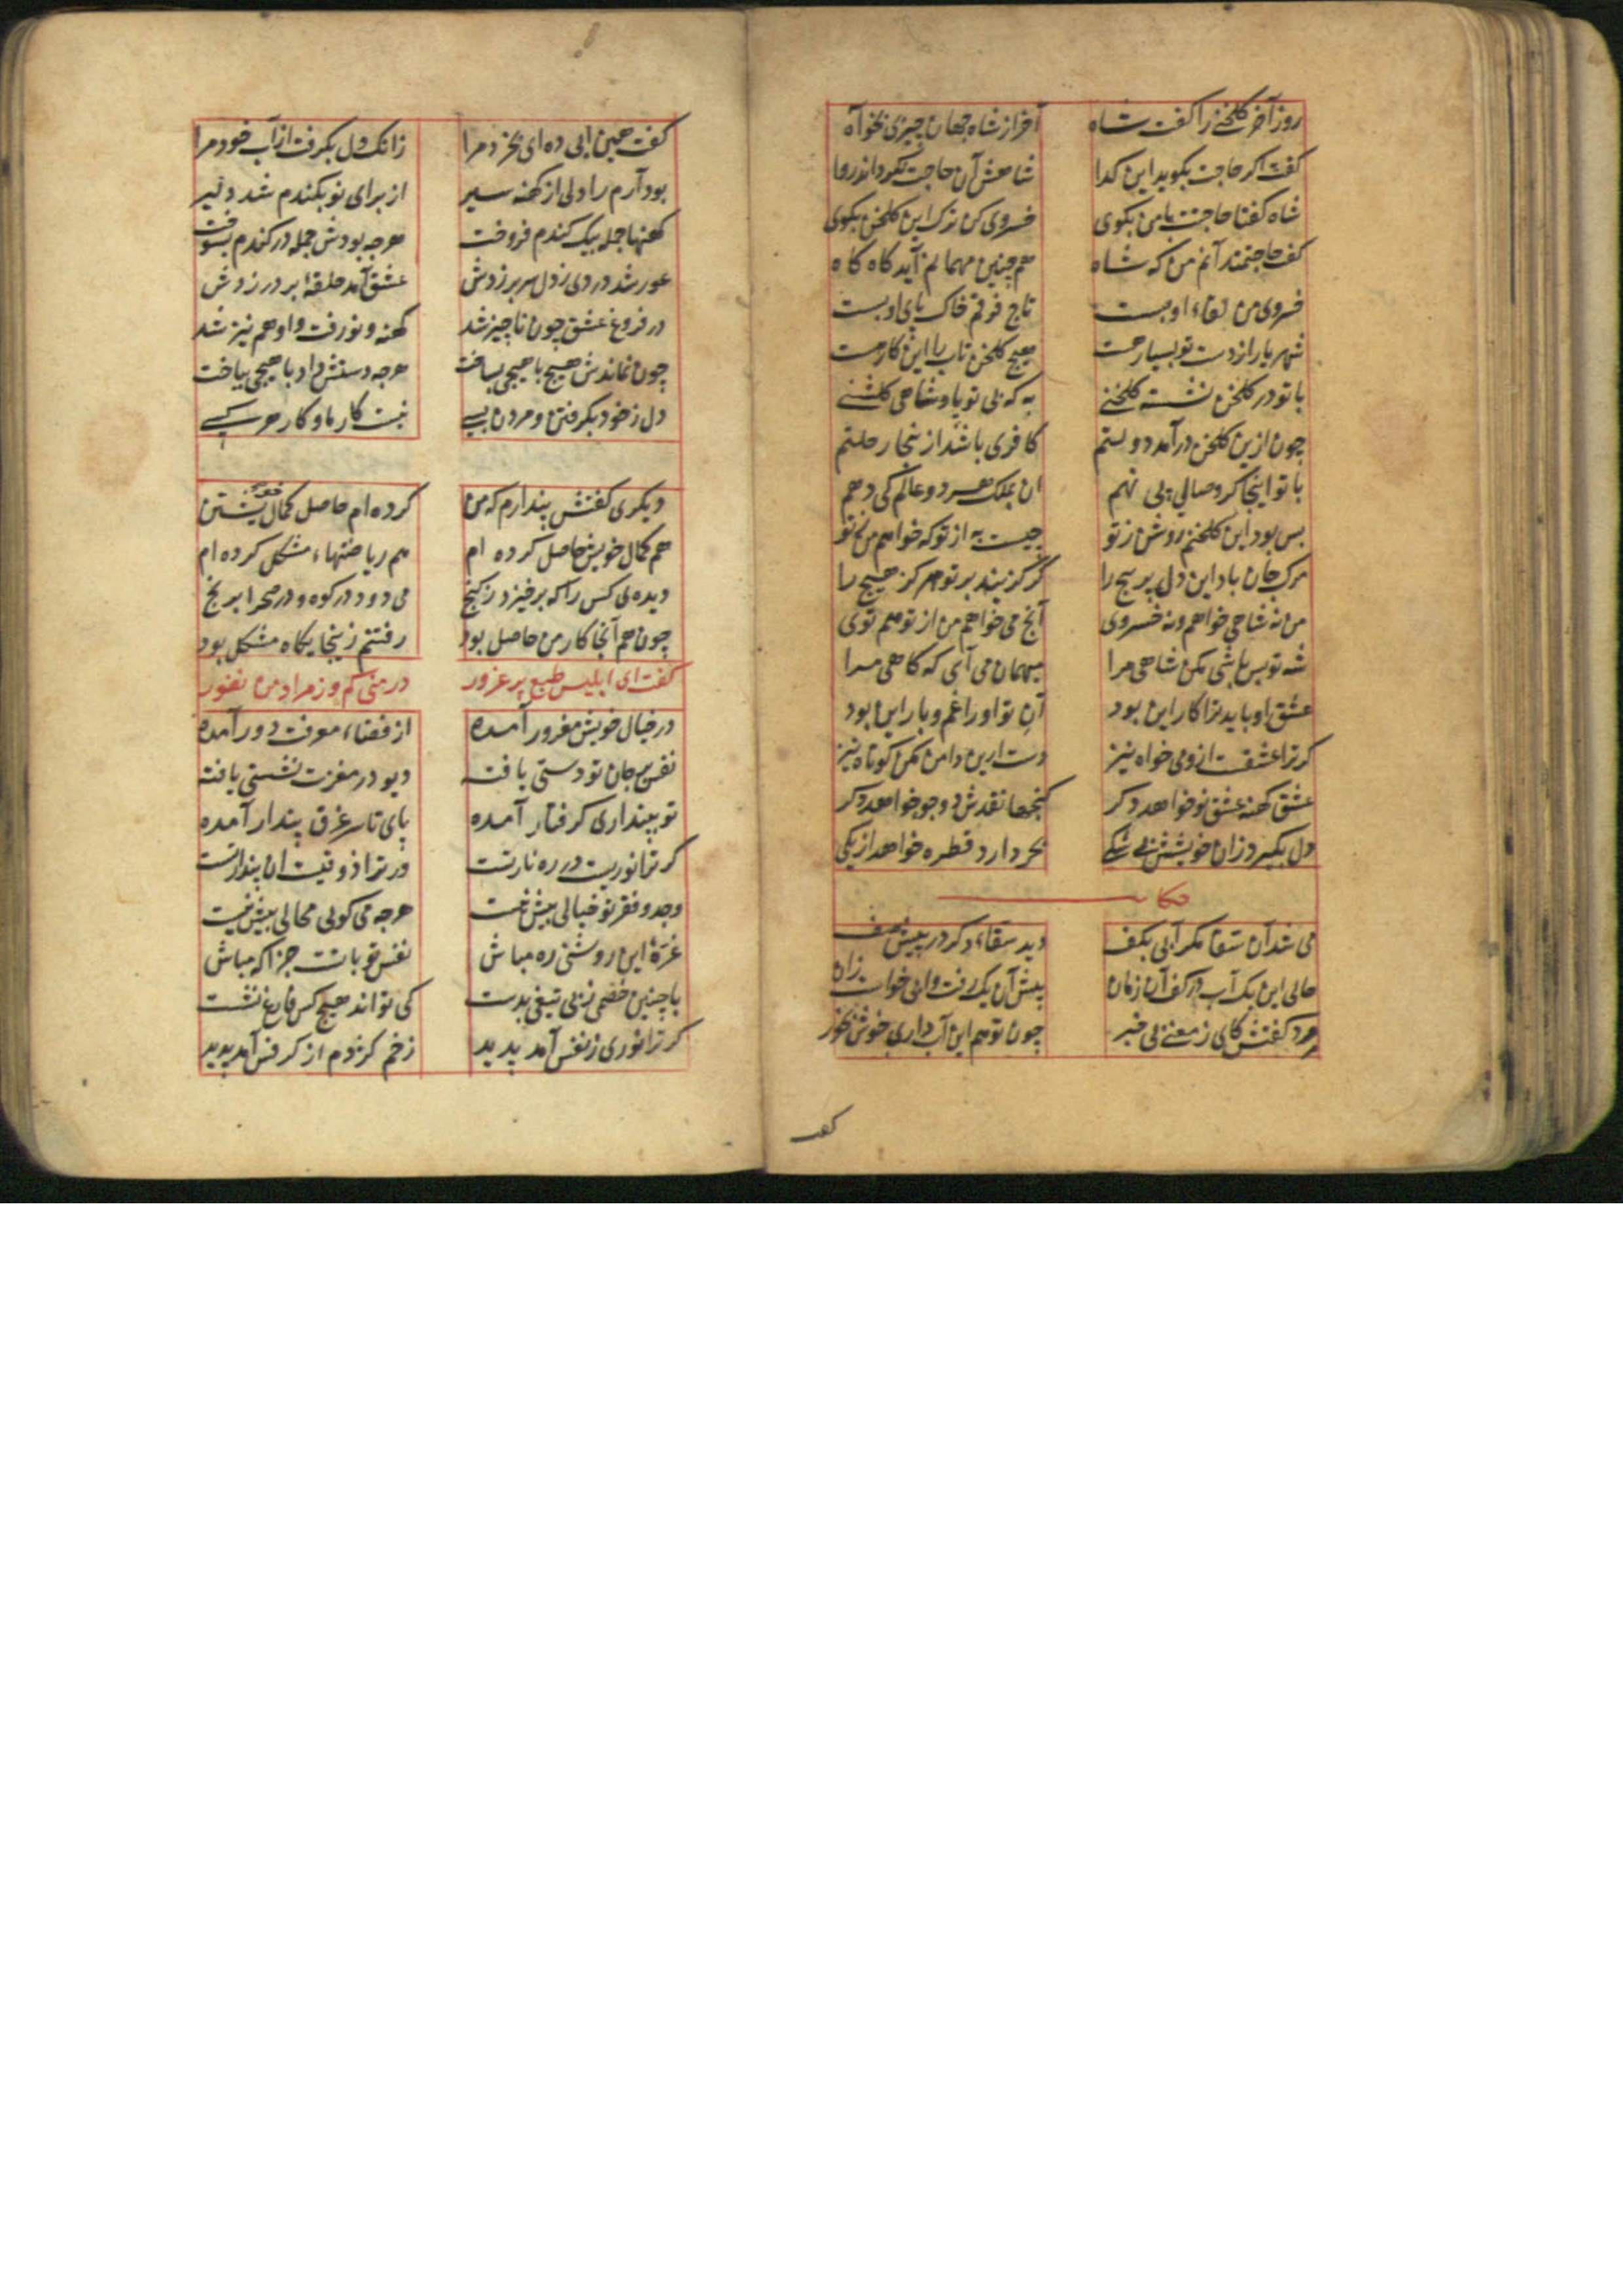 روز آخر کلخنی را کفت شاه آخر از شاه جهان چیزی بخواه
کفت اکر حاجت بکوید این کدا شاهش آن حاجت بکرداند روا
شاه کفتا حاجتت با من بکوی خسروی کن ترک این کلخن بکوی
کفت حاجتمند آنم من که شاه همچنین مهمانم آید کاه کاه
خسروی من لقاء او بست تاج فرقم خاک پای او بست
شهریار از دست تو بسیار هست هیچ کلخن تاب را این کار هست
با تو در کلخن نشسته کلخنی به که بی تو پادشاهی کلشنی
چون ازین کلخن در آمد دولتم کافری باشد از ینجا رحلتم
با تو اینجا کر وصالی پی نهم آن بملک هر دو عالم کی دهم
بس بود این کلخنم روشن ز تو چیست به از تو که خواهم من ز تو
مرک جان باد این دل پر پیچ را کر کزیند بر تو هرکز هیچ را
من نه شاهی خواهم و نه خسروی آنچ می خواهم من از تو هم توی
شه تو بس باشی مکن شاهی مرا میهمان می آی که کاهی مرا
عشق او باید ترا کار این بود آن تو او را غم و بار این بود
کر ترا عشقست ازو می خواه نیز دست ازین دامن مکن کوتاه نیز
عشق کهنه عشق نو خواهد دکر کنجها نقدش دو جو خواهد دکر
دل بکیرد زان خویشش بی شکی بحر دارد قطره خواهد از یکی
حکایت
می شد آن سقا مکر آبی بکف دید سقاء دکر در پیش صف
حالی این یک آب در کف آن زمان پیش آن یک رفت و آبی خواست زان
مرد کفتش کای ز معنی بی خبر چون تو هم این آب داری خوش بخور
کفت
کفت هین آبی ده ای بخرد مرا زانک دل بکرفت از آب خود مرا
بود آدم را دلی از کهنه سیر از برای نو بکندم شد دلیر
کهنها جمله بیک کندم فروخت هرچه بودش جمله در کندم بسوخت
عور شد دردی ز دل سر بر زدش عشق آمد حلقهٔ بر در زدش
در فروغ عشق چون ناچیز شد کهنه و نو رفت و او هم نیز شد
چون نماندش هیچ با هیچی بساخت هرچه دستش داد با هیچی بباخت
دل ز خود بکرفتن و مردن بسی نیست کار ما و کار هر کسی
دیکری کفتش پندارم که من کرده ام حاصل کمال خویشتن
هم کمال خویش حاصل کرده ام هم ریاضتهاء مشکل کرده ام
دیده ی کس را که برخیزد ز کنج می دود در کوه و در صحرا برنج
چون هم آنجا کار من حاصل بود رفتنم زینجایکاه مشکل بود
کفت ای ابلیس طبع پر غرور در منی کم وز مراد من نفور
در خیال خویش مغرور آمده از فضاء معرفت دور آمده
نفس بر جان تو دستی یافته دیو در مغزت نشستی یافته
تو بپنداری کرفتار آمده پای تا سر غرق پندار آمده
کر ترا نوریست در ره نار تست ور ترا ذوقیست آن پندار تست
وجد و فقر تو خیالی بیش نیست هرچه می کویی محالی بیش نیست
غرهٔ این روشنی ره مباش نفس تو با تست جز آکه مباش
با چنین خصمی ز بی تیغی بدست کی تواند هیچ کس فارغ نشست
کر ترا نوری ز نفس آمد پدید زخم کژدم از کرفس آمد پدید